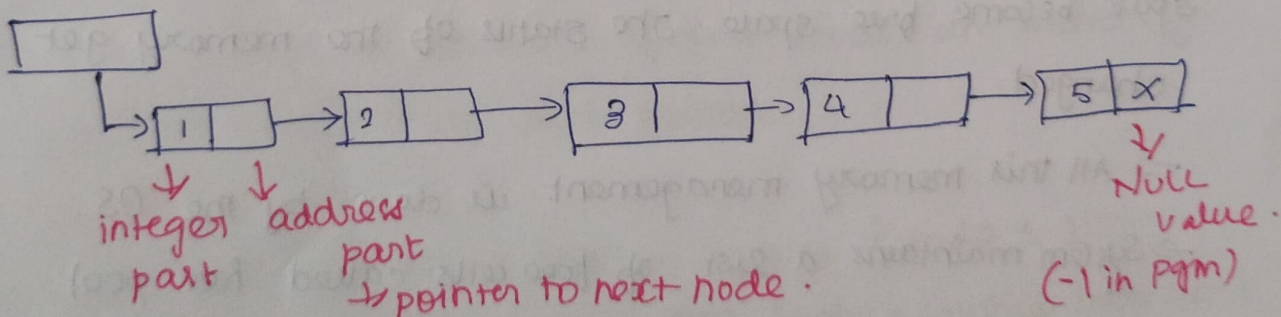 1 2 3 4 5 X
integer part
address part
→ pointer to next node.
NULL value.
(-1 in pgm)